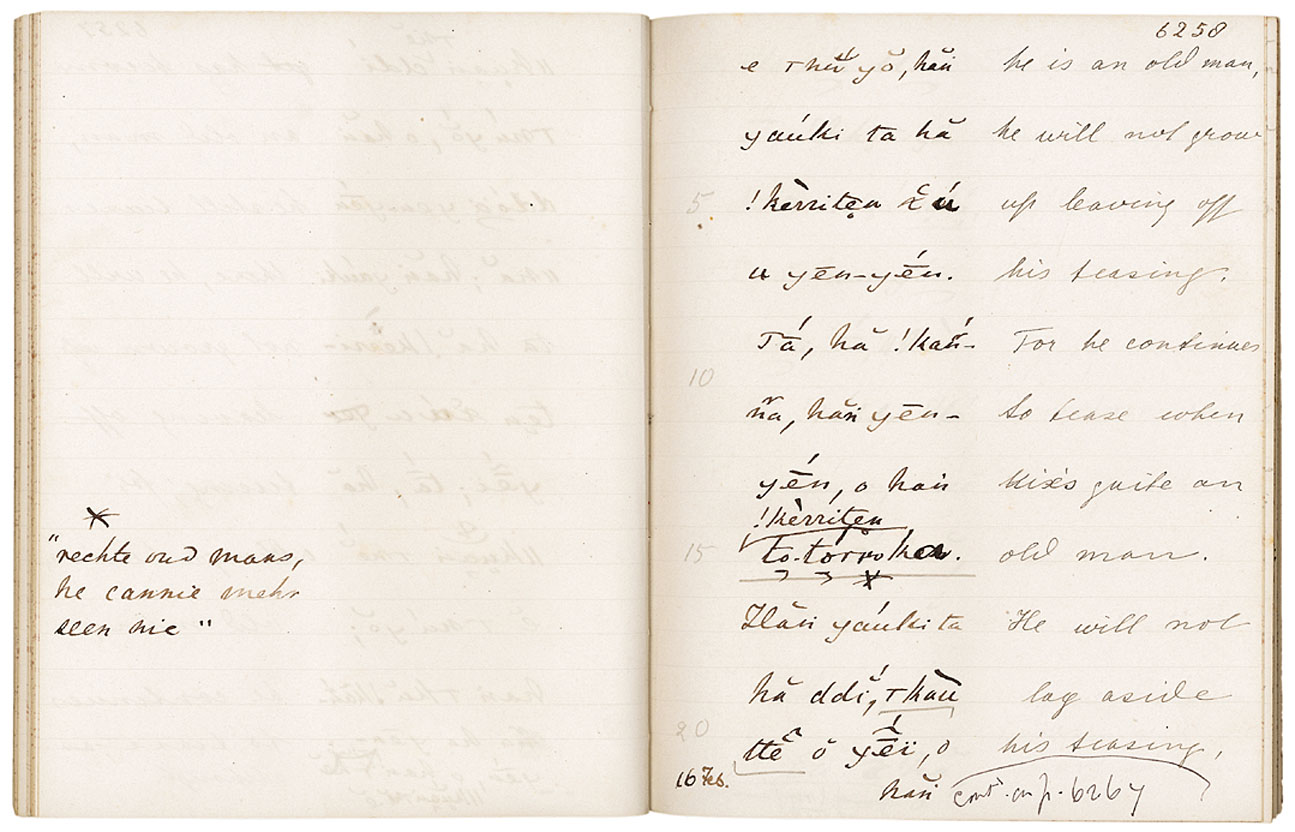 *
"rechte oud mans,
he cannie mehr
seen nie"
6258
he is an old man,
yauki ta hă he will not grow
5 !kèrriten up leaving off
u yēn-yḗn. his teasing.
Tá, hă !kań- For he continues
10
ñ̆a, hăn yēn- to tease when
yḗn, o hań quite an
!kèrriten
15 to-tórroken. old man.
* 
Hăn yáuki ta He will not
hă ddí, lay aside
20
his teasing,
16 Feb. hăn contd. on p. 6267